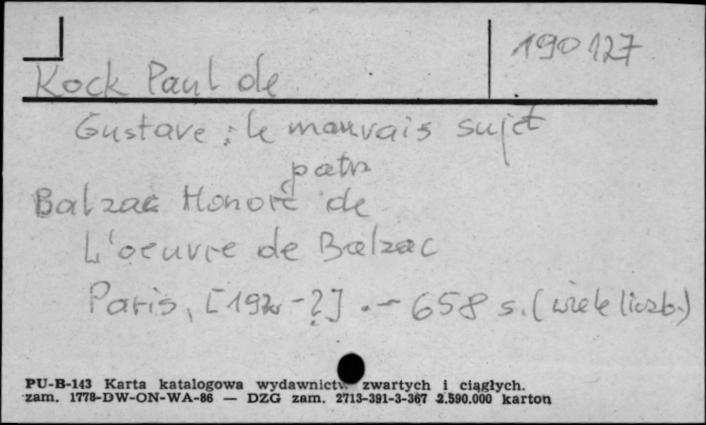 190127
Kock Paul de
Gustave : le mauvais sujet
patrz
Balzac Honoré de
L'oeuvre de Balzac
Paris, [192-?] .- 658 s. (wiele liczb.)
PU-B-143 Karta katalogowa wydawnictw zwartych i ciągłych.
zam. 1778-DW-ON-WA-86 — DZG zam. 2713-391-3-367 2.590.000 karton